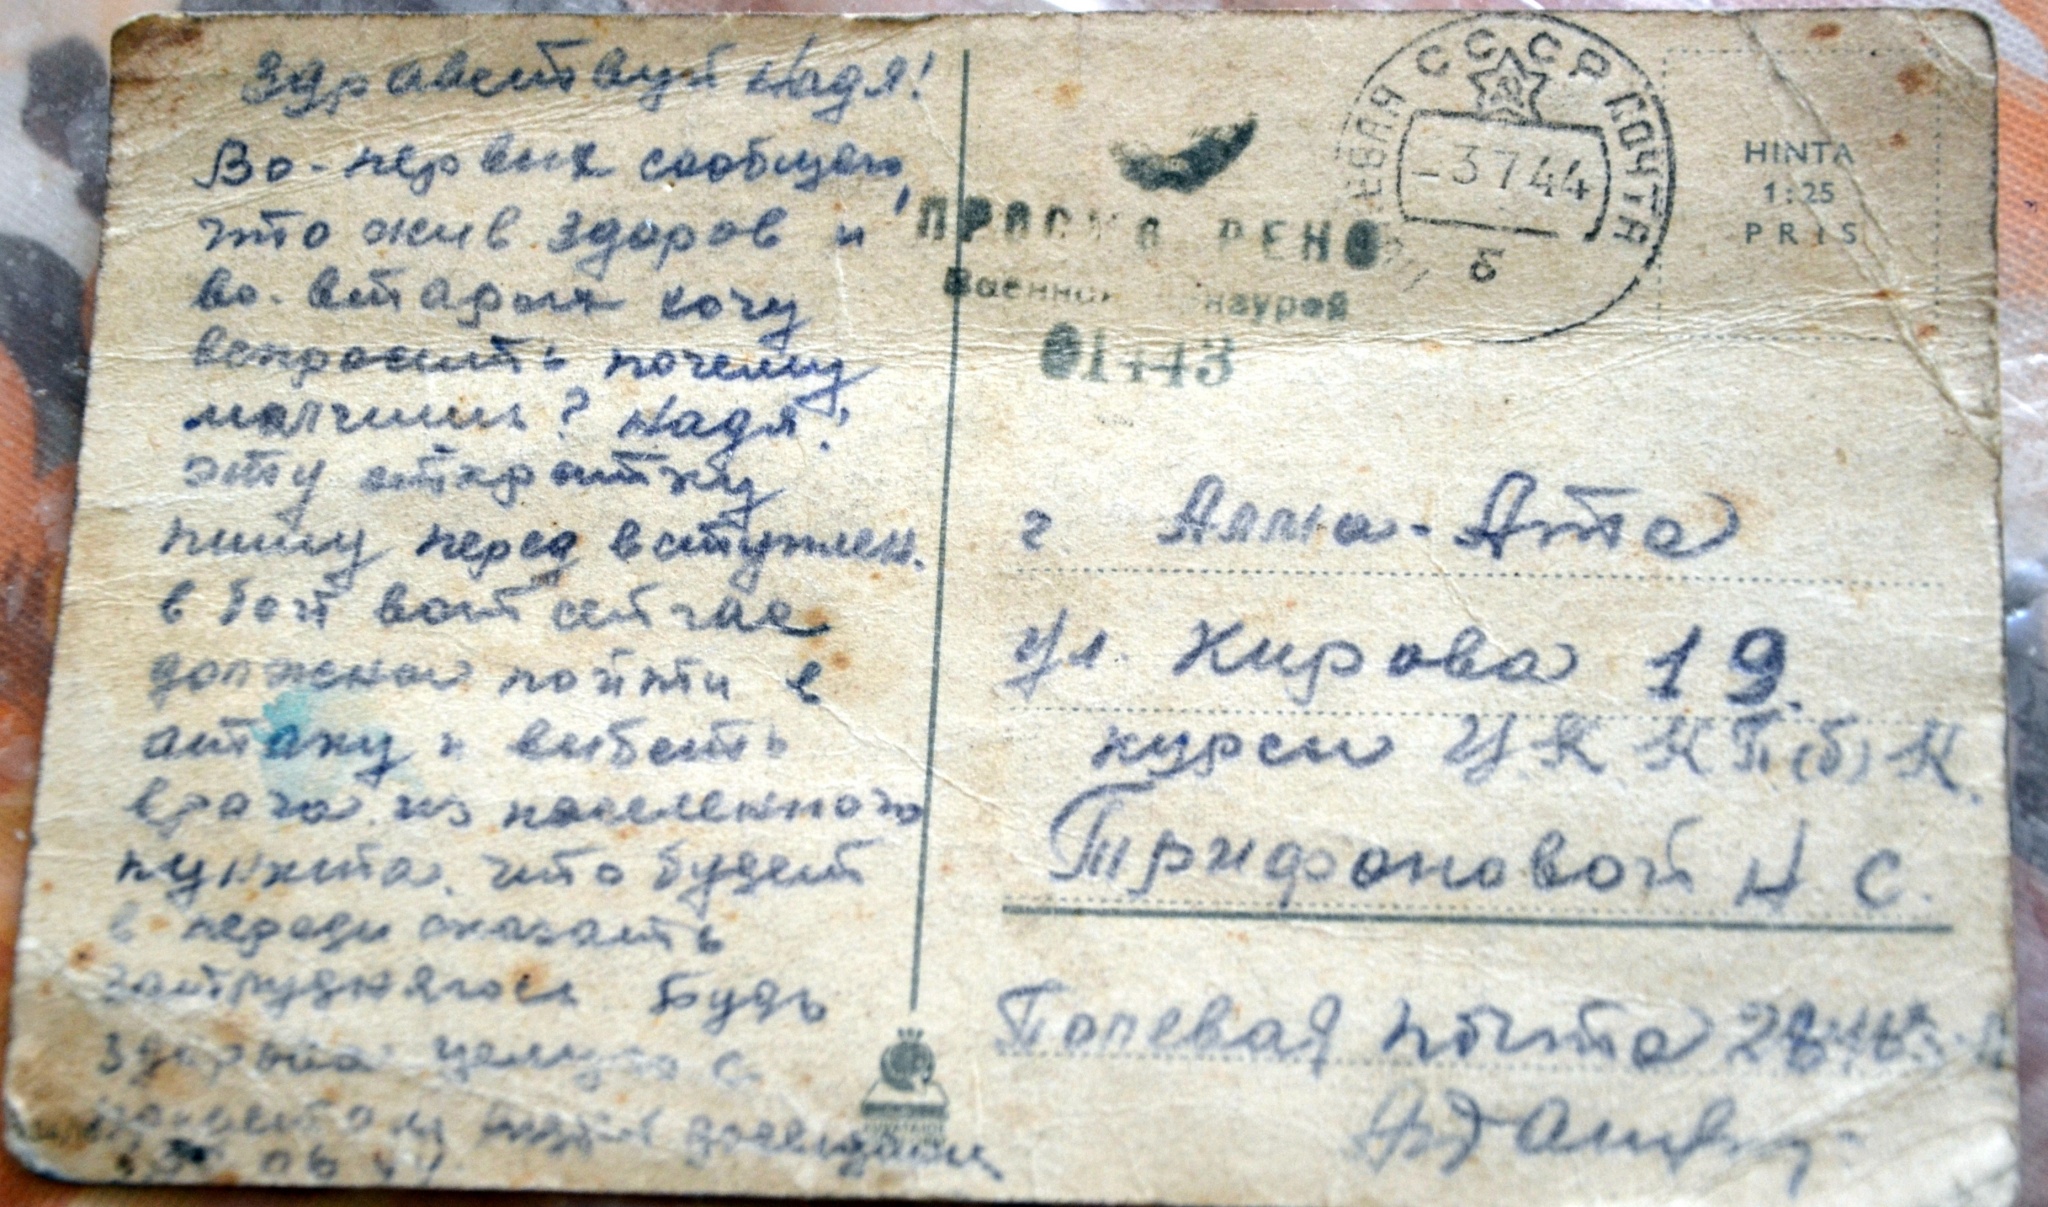 Здравствуй Надя!
Во-первых сообщаю,
что жив здоров и
во-вторых хочу
вспросить почему
молчишь? Надя!
эту открытку
пишу перед вступлен.
в бой вот сейчас
должны пойти в
атаку и выбить
врага из населенного
пункта. что будет
в переди сказать
затрудняюсь Будь
здорова целую с
приветом
06 44
СССР ПОЧТА
-3 7 44
б
HINTA
1:25
PRIS
Военной
01443
г. Алма-Ата
ул. Кирова 19.
курсы ЦК КП(б)К.
Трифоновой Н С.
Полевая почта